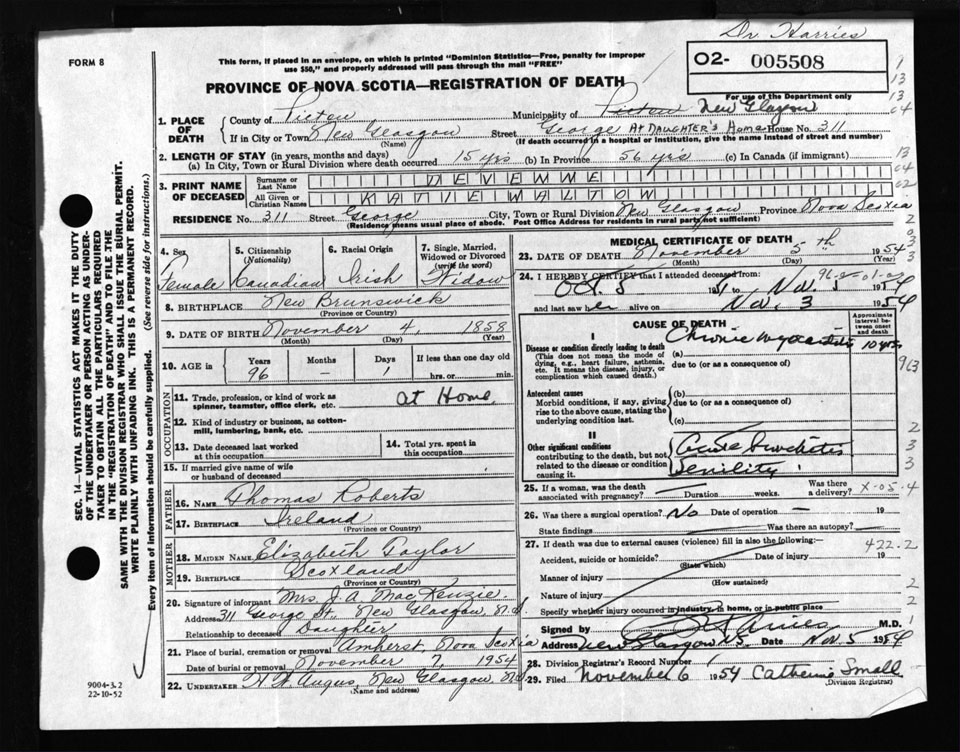 Dr Harries
FORM 8
This form, if placed in an envelope, on which is printed "Dominion Statistics—Free, penalty for improper
use $50," and properly addressed will pass through the mail "FREE"
O2- 005508
PROVINCE OF NOVA SCOTIA—REGISTRATION OF DEATH
For use of the Department only
1. PLACE OF DEATH
County of Pictou
Municipality of Pictou New Glasgow
If in City or Town New Glasgow Street George At Daughter's Home House No. 311
(Name) (If death occurred in a hospital or institution, give the name instead of street and number)
2. LENGTH OF STAY (in years, months and days)
(a) In City, Town or Rural Division where death occurred 15 yrs (b) In Province 56 yrs (c) In Canada (if immigrant)
3. PRINT NAME OF DECEASED
Surname or Last Name DEVENNE
All Given or Christian Names KATIE WALTON
RESIDENCE No. 311 Street George City, Town or Rural Division New Glasgow Province Nova Scotia
(Residence means usual place of abode. Post Office Address for residents in rural parts not sufficient)
4. Sex Female
5. Citizenship (Nationality) Canadian
6. Racial Origin Irish
7. Single, Married, Widowed or Divorced (write the word) Widow
8. BIRTHPLACE New Brunswick
(Province or Country)
9. DATE OF BIRTH November 4, 1858
(Month) (Day) (Year)
10. AGE in Years 96 Months — Days 1 If less than one day old hrs. or min.
OCCUPATION
11. Trade, profession, or kind of work as
spinner, teamster, office clerk, etc. at Home
12. Kind of industry or business, as cotton-
mill, lumbering, bank, etc.
13. Date deceased last worked
at this occupation
14. Total yrs. spent in
this occupation
15. If married give name of wife
or husband of deceased
FATHER
16. Name Thomas Roberts
17. Birthplace Ireland
(Province or Country)
MOTHER
18. Maiden Name Elizabeth Taylor
19. Birthplace Scotland
(Province or Country)
20. Signature of informant Mrs. J. A. MacKenzie
Address 311 George St., New Glasgow, N.S.
Relationship to deceased Daughter
21. Place of burial, cremation or removal Amherst, Nova Scotia
Date of burial or removal November 7, 1954
22. UNDERTAKER H. W. Angus, New Glasgow, N.S.
(Name and address)
MEDICAL CERTIFICATE OF DEATH
23. DATE OF DEATH November 5th 1954
(Month) (Day) (Year)
24. I HEREBY CERTIFY that I attended deceased from
Oct 5 51 to Nov. 5 1954
and last saw her alive on Nov. 3 1954
CAUSE OF DEATH
Approximate interval between onset and death
I
Disease or condition directly leading to death
(This does not mean the mode of
dying, e.g., heart failure, asthenia,
etc. It means the disease, injury, or
complication which caused death.)
(a) Chronic myocarditis 10 yrs
due to (or as a consequence of)
Antecedent causes
Morbid conditions, if any, giving
rise to the above cause, stating the
underlying condition last.
(b)
due to (or as a consequence of)
(c)
II
Other significant conditions
contributing to the death, but not
related to the disease or condition
causing it.
Acute bronchitis
Senility
25. If a woman, was the death
associated with pregnancy? — Duration weeks. Was there a delivery?
X-05.4
26. Was there a surgical operation? No Date of operation — 19
State findings Was there an autopsy?
27. If death was due to external causes (violence) fill in also the following:—
422.2
Accident, suicide or homicide? Date of injury 19
(State which)
Manner of injury
(How sustained)
Nature of injury
Specify whether injury occurred in industry, in home, or in public place
Signed by M.D.
Address New Glasgow N.S. Date Nov. 5 1954
28. Division Registrar's Record Number
29. Filed November 6 1954 Catherine Small
(Division Registrar)
SEC. 14—VITAL STATISTICS ACT MAKES IT THE DUTY
OF THE UNDERTAKER OR PERSON ACTING AS UNDER-
TAKER TO OBTAIN ALL THE PARTICULARS REQUIRED
IN THE "REGISTRATION OF DEATH" AND TO FILE THE
SAME WITH THE DIVISION REGISTRAR WHO SHALL ISSUE THE BURIAL PERMIT.
WRITE PLAINLY WITH UNFADING INK. THIS IS A PERMANENT RECORD.
Every item of information should be carefully supplied. (See reverse side for instructions.)
9004-3.2
22-10-52